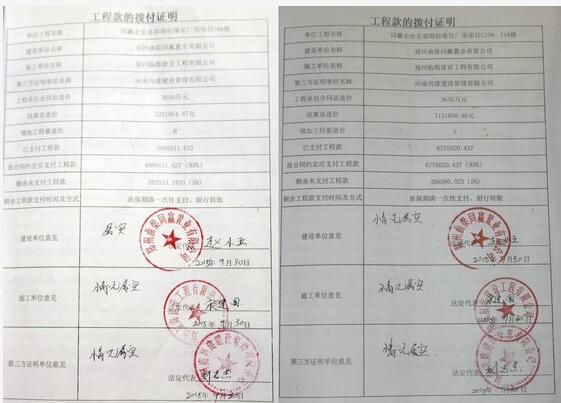 工程款的拨付证明
单位工程名称
建设单位名称 郑州曲梁同赢置业有限公司
施工单位名称 郑州航海建设工程有限公司
第三方证明单位名称 河南兴建建设管理有限公司
工程承包合同总造价 3650万元
结算总造价 5251064.07元
增加工程量造价 0
已支付工程款 4988511.627
按合同约定应支付工程款 4988511.627 (95%)
剩余未支付工程款 262553.2435 (5%)
剩余工程款支付时间及方式 质保期满一次性支付、银行转账
建设单位意见
属实
法定代表
2015年9月30日
施工单位意见
情况属实
2015年9月30日
第三方证明单位意见
情况属实
法定代表
2015年9月30日
工程款的拨付证明
单位工程名称
建设单位名称 郑州曲梁同赢置业有限公司
施工单位名称 郑州航海建设工程有限公司
第三方证明单位名称 河南兴建建设管理有限公司
工程承包合同总造价 3650万元
结算总造价 7131600.46元
增加工程量造价 0
已支付工程款 6775020.437
按合同约定应支付工程款 6775020.437 (95%)
剩余未支付工程款 356580.023 (5%)
剩余工程款支付时间及方式 质保期满一次性支付、银行转账
建设单位意见
情况属实
2015年9月30日
施工单位意见
情况属实
法定代表
2015年9月30日
第三方证明单位意见
情况属实
法定代表
2015年9月30日